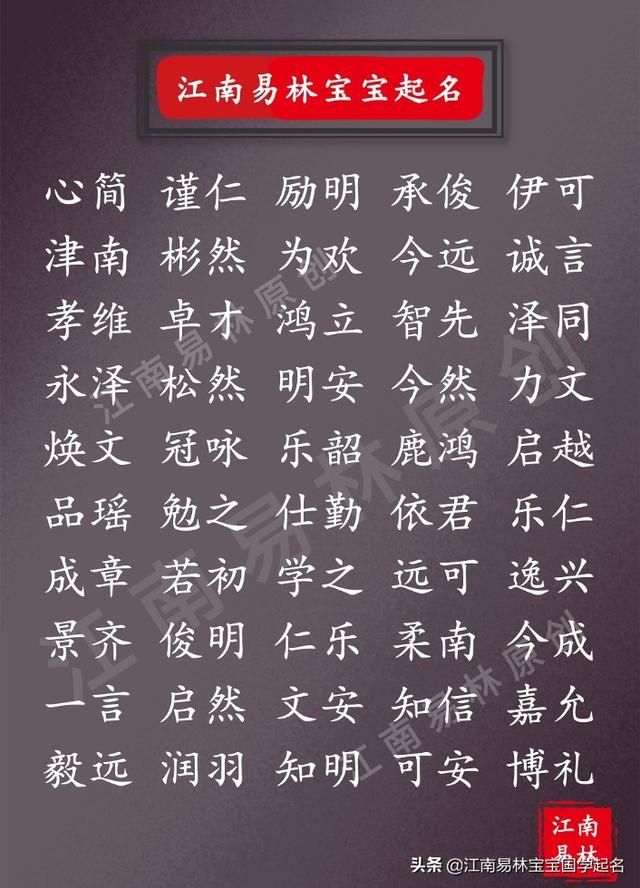 江南易林宝宝起名
心简 谨仁 励明 承俊 伊可
津南 彬然 为欢 今远 诚言
孝维 卓才 鸿立 智先 泽同
永泽 松然 明安 今然 力文
焕文 冠咏 乐韶 鹿鸿 启越
品瑶 勉之 仕勤 依君 乐仁
成章 若初 学之 远可 逸兴
景齐 俊明 仁乐 柔南 今成
一言 启然 文安 知信 嘉允
毅远 润羽 知明 可安 博礼
江南易林原创
江南易林原创
江南易林原创
江南
易林
头条 @江南易林宝宝国学起名